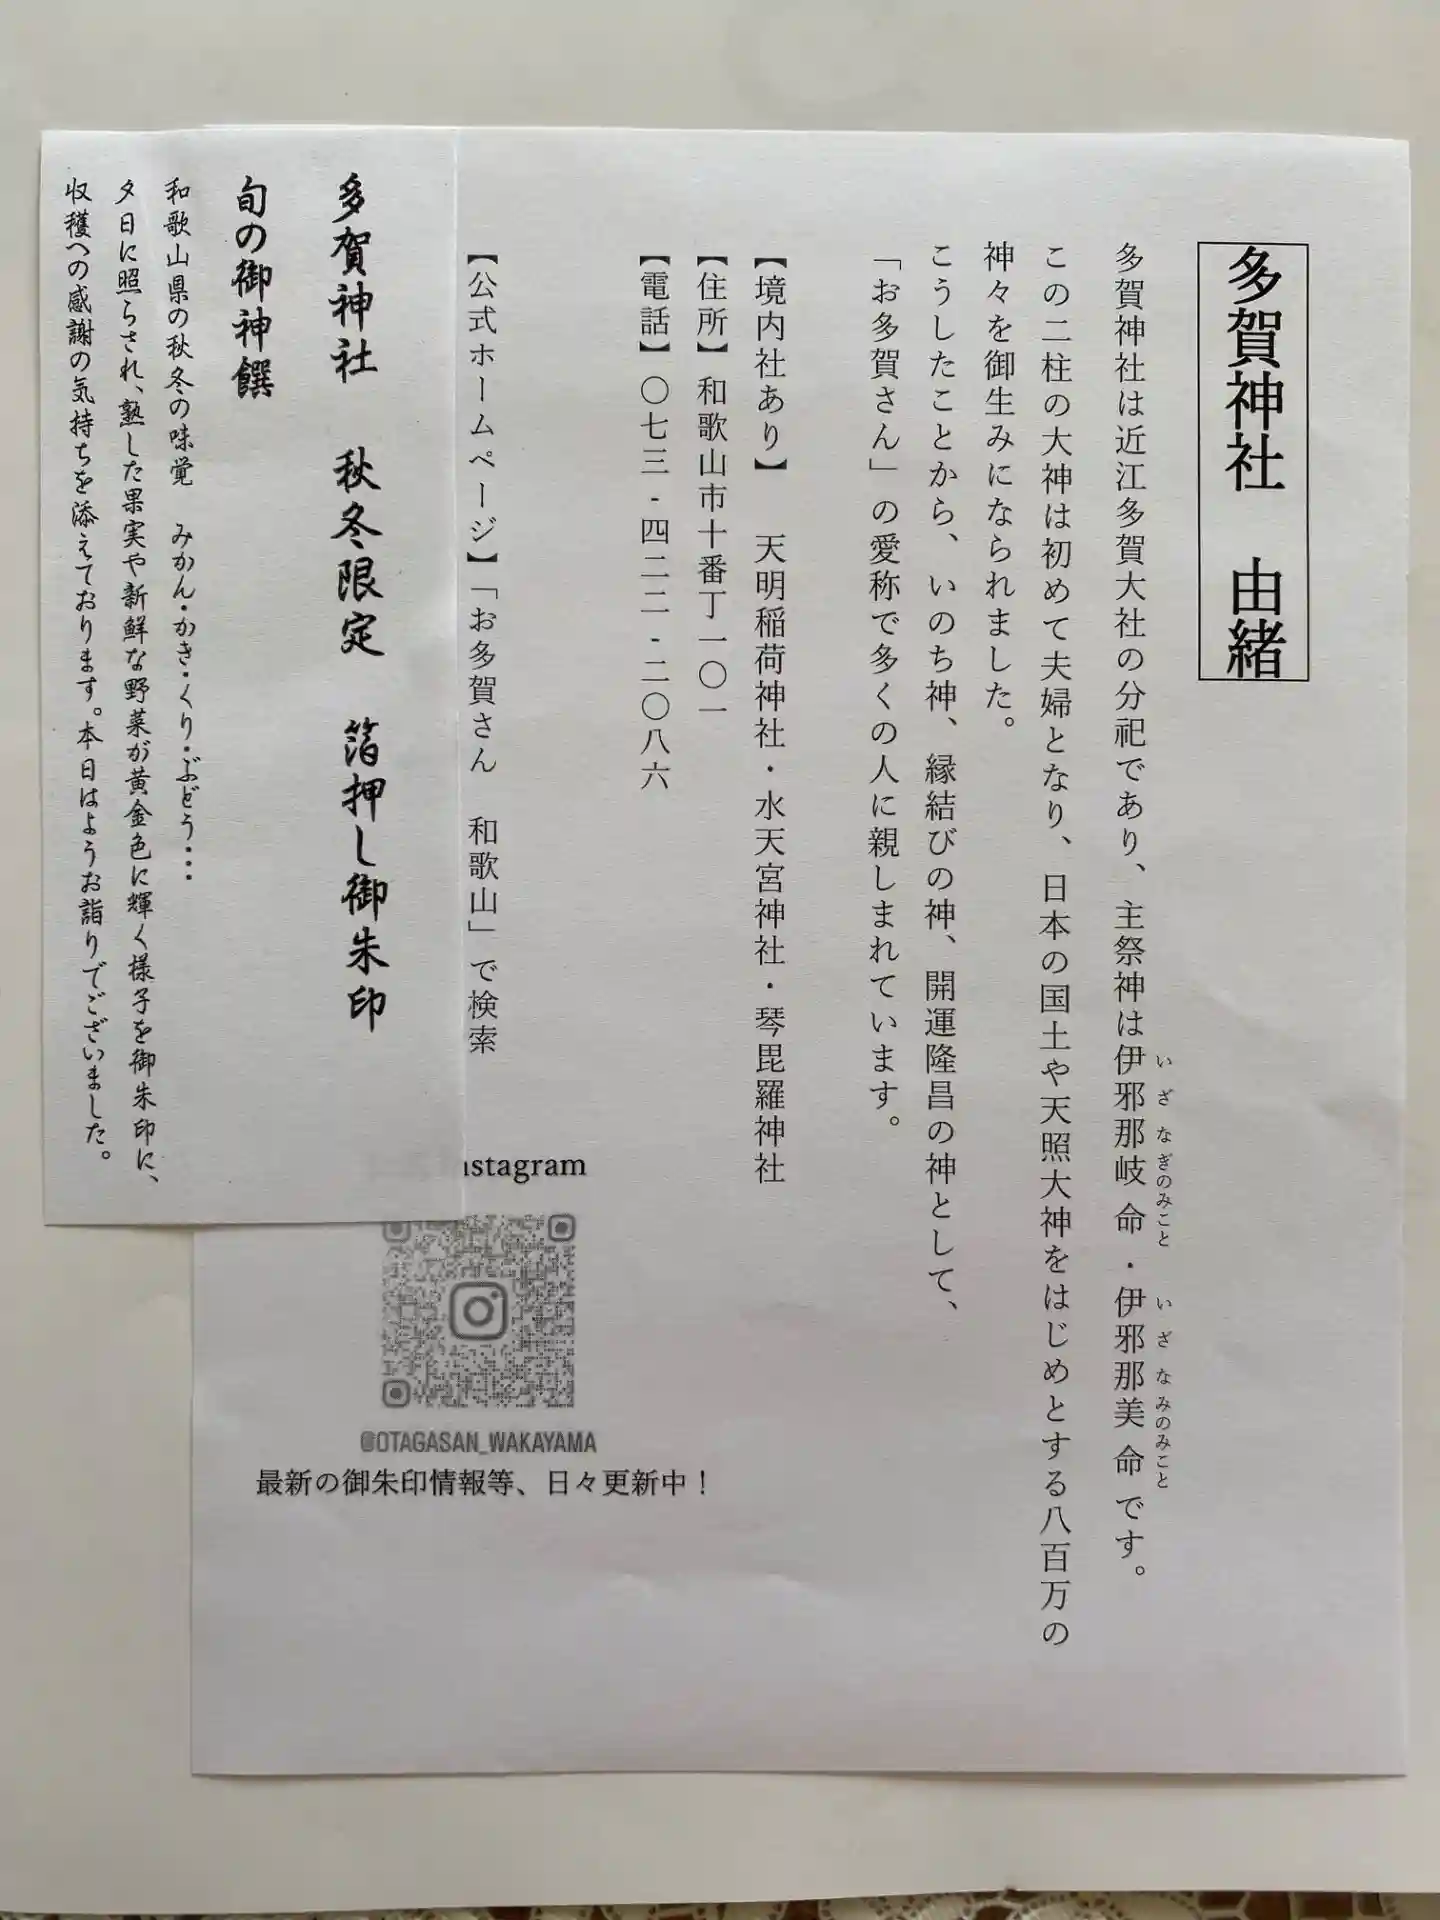 多賀神社　由緒
多賀神社は近江多賀大社の分祀であり、主祭神は伊邪那岐命・伊邪那美命です。
いざなぎのみこと
いざなみのみこと
この二柱の大神は初めて夫婦となり、日本の国土や天照大神をはじめとする八百万の
神々を御生みになられました。
こうしたことから、いのち神、縁結びの神、開運隆昌の神として、
「お多賀さん」の愛称で多くの人に親しまれています。
【境内社あり】　天明稲荷神社・水天宮神社・琴毘羅神社
【住所】和歌山市十番丁一〇一
【電話】〇七三-四二二-二〇八六
【公式ホームページ】「お多賀さん　和歌山」で検索
nstagram
@OTAGASAN_WAKAYAMA
最新の御朱印情報等、日々更新中！
多賀神社　秋冬限定　箔押し御朱印
旬の御神饌
和歌山県の秋冬の味覚　みかん・かき・くり・ぶどう・・・
夕日に照らされ、熟した果実や新鮮な野菜が黄金色に輝く様子を御朱印に、
収穫への感謝の気持ちを添えております。本日はようお詣りでございました。